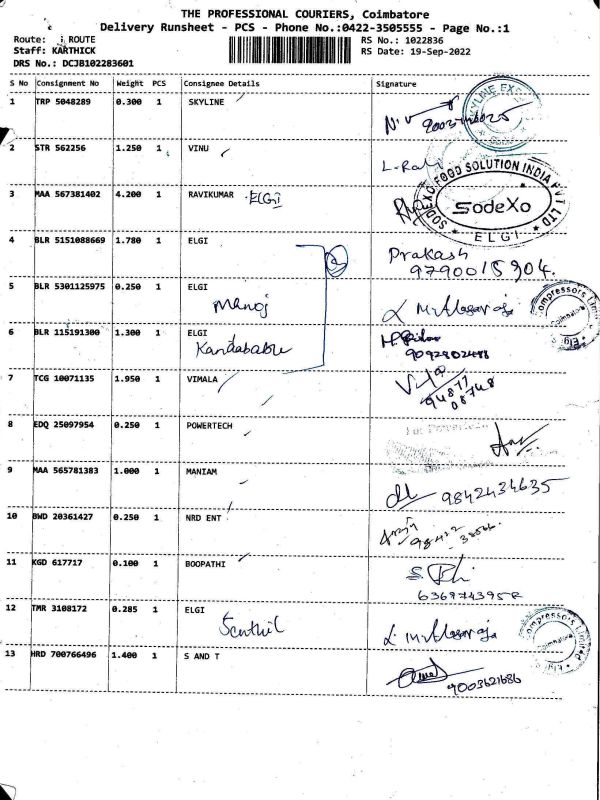 THE PROFESSIONAL COURIERS, Coimbatore
Delivery Runsheet - PCS - Phone No.:0422-3505555 - Page No.:1
Route: i ROUTE RS No.: 1022836
Staff: KARTHICK RS Date: 19-Sep-2022
DRS No.: DCJB102283601
S No Consignment No Weight PCS Consignee Details Signature
1 TRP 5048289 0.300 1 SKYLINE
2 STR 562256 1.250 1 VINU
3 MAA 567381402 4.200 1 RAVIKUMAR ELGI
SODEXO FOOD SOLUTION INDIA PVT LTD
sodexo
ELGI
4 BLR 5151088669 1.780 1 ELGI Prakash
9790015904.
5 BLR 5301125975 0.250 1 ELGI
Manoj
Compressors Limited
Coimbatore
6 BLR 115191300 1.300 1 ELGI
Kandababu
7 TCG 10071135 1.950 1 VIMALA
94877
08748
8 EDQ 25097954 0.250 1 POWERTECH
9 MAA 565781383 1.000 1 MANIAM
9842434635
10 BWD 20361427 0.250 1 NRD ENT
11 KGD 617717 0.100 1 BOOPATHI
12 TMR 3108172 0.285 1 ELGI
Senthil
Compressors Limited
Coimbatore
13 HRD 700766496 1.400 1 S AND T
9003621686